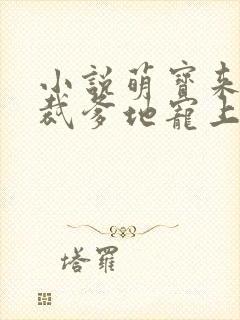 小說萌寶來
裁爹地寵上
塔羅